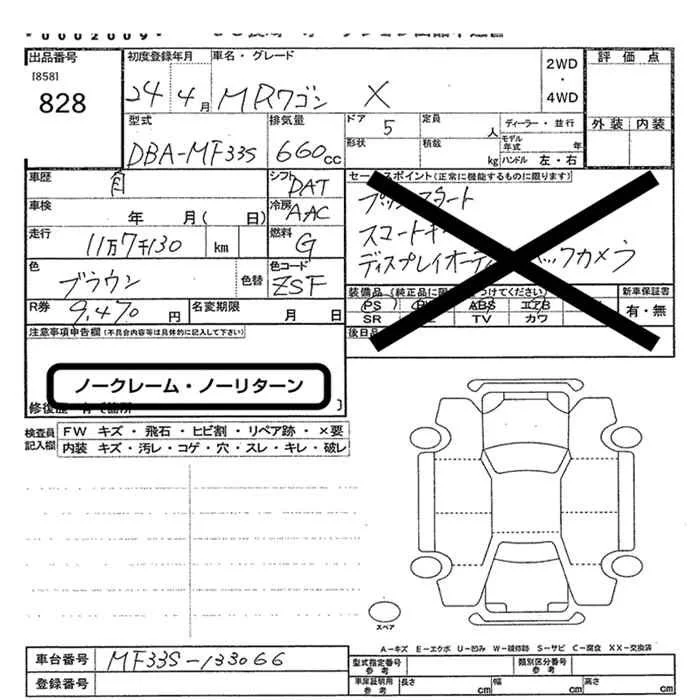 *00002009*
出品番号
[858]
828
初度登録年月 車名・グレード
24年4月 MRワゴン X
2WD
・
4WD
評価点
外装 内装
型式 排気量
DBA-MF33S 660cc
ドア 5 定員 人
形状 積載 kg
ディーラー・並行
モデル年式 年
ハンドル 左・右
車歴 自
シフト DAT
車検 年 月( 日)
冷房 AAC
走行 11万7千130 km
燃料 G
色 ブラウン 色替
色コード ZSF
R券 9,470円 名変期限 月 日
セールスポイント(正常に機能するものに限ります)
プッシュスタート
スマートキー
ディスプレイオーディオ バックカメラ
装備品(純正品に限り つけてください)
PS ABS エアB
SR TV カワ
新車保証書
有・無
後日品
注意事項申告欄(不具合内容等は具体的に記入して下さい)
ノークレーム・ノーリターン
修復歴 有で箇所
検査員記入欄
FW キズ・飛石・ヒビ割・リペア跡・×要
内装 キズ・汚レ・コゲ・穴・スレ・キレ・破レ
スペア
A-キズ E-エクボ U-凹み W-補修跡 S-サビ C-腐食 XX-交換済
車台番号 MF33S-133066
登録番号
型式指定番号 参考 類別区分番号 参考
車庫証明用 参考 長さ cm 幅 cm 高さ cm